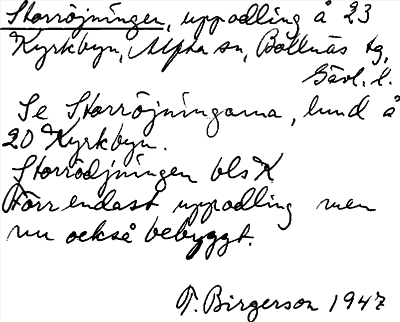 Storröjningen, uppodling å 23
Kyrkbyn, Alfta sn, Bollnäs tg,
Gävl. l.
Se Storröjningarna, lund å
20 Kyrkbyn.
Storrödjningen bls K
Förr endast uppodling men
nu också bebyggt.
T. Birgerson 1947